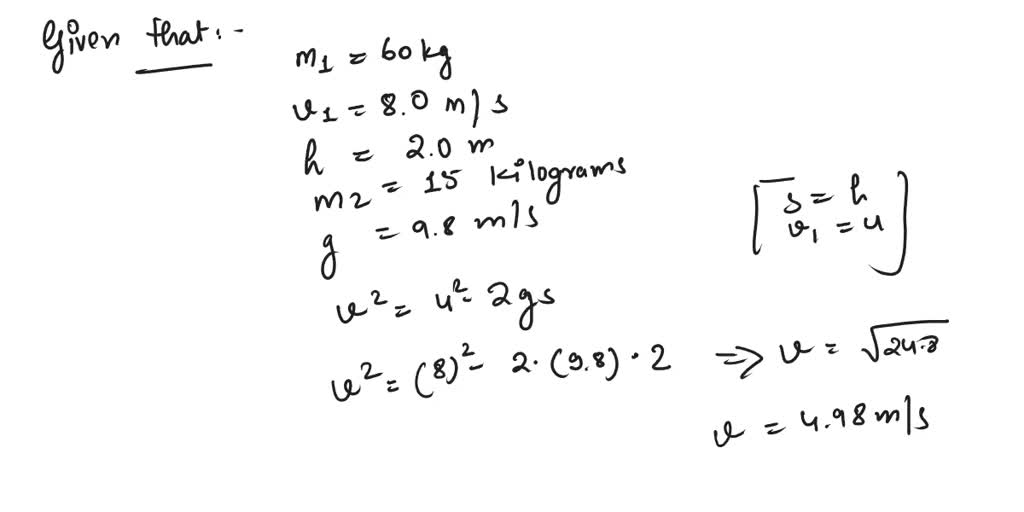 Given that:-
m1 = 60 kg
v1 = 8.0 m/s
h = 2.0 m
m2 = 15 kilograms
g = 9.8 m/s
[s = h
v1 = u]
v² = u² - 2gs
v² = (8)² - 2·(9.8)·2 => v = √24.8
v = 4.98 m/s